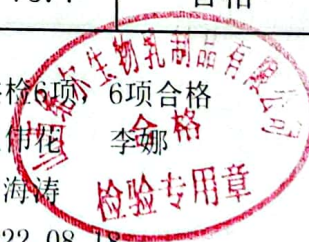 检6项，6项合格
伟花 李娜
海涛
22.08.18
尔生物乳制品有限公司
合格
检验专用章